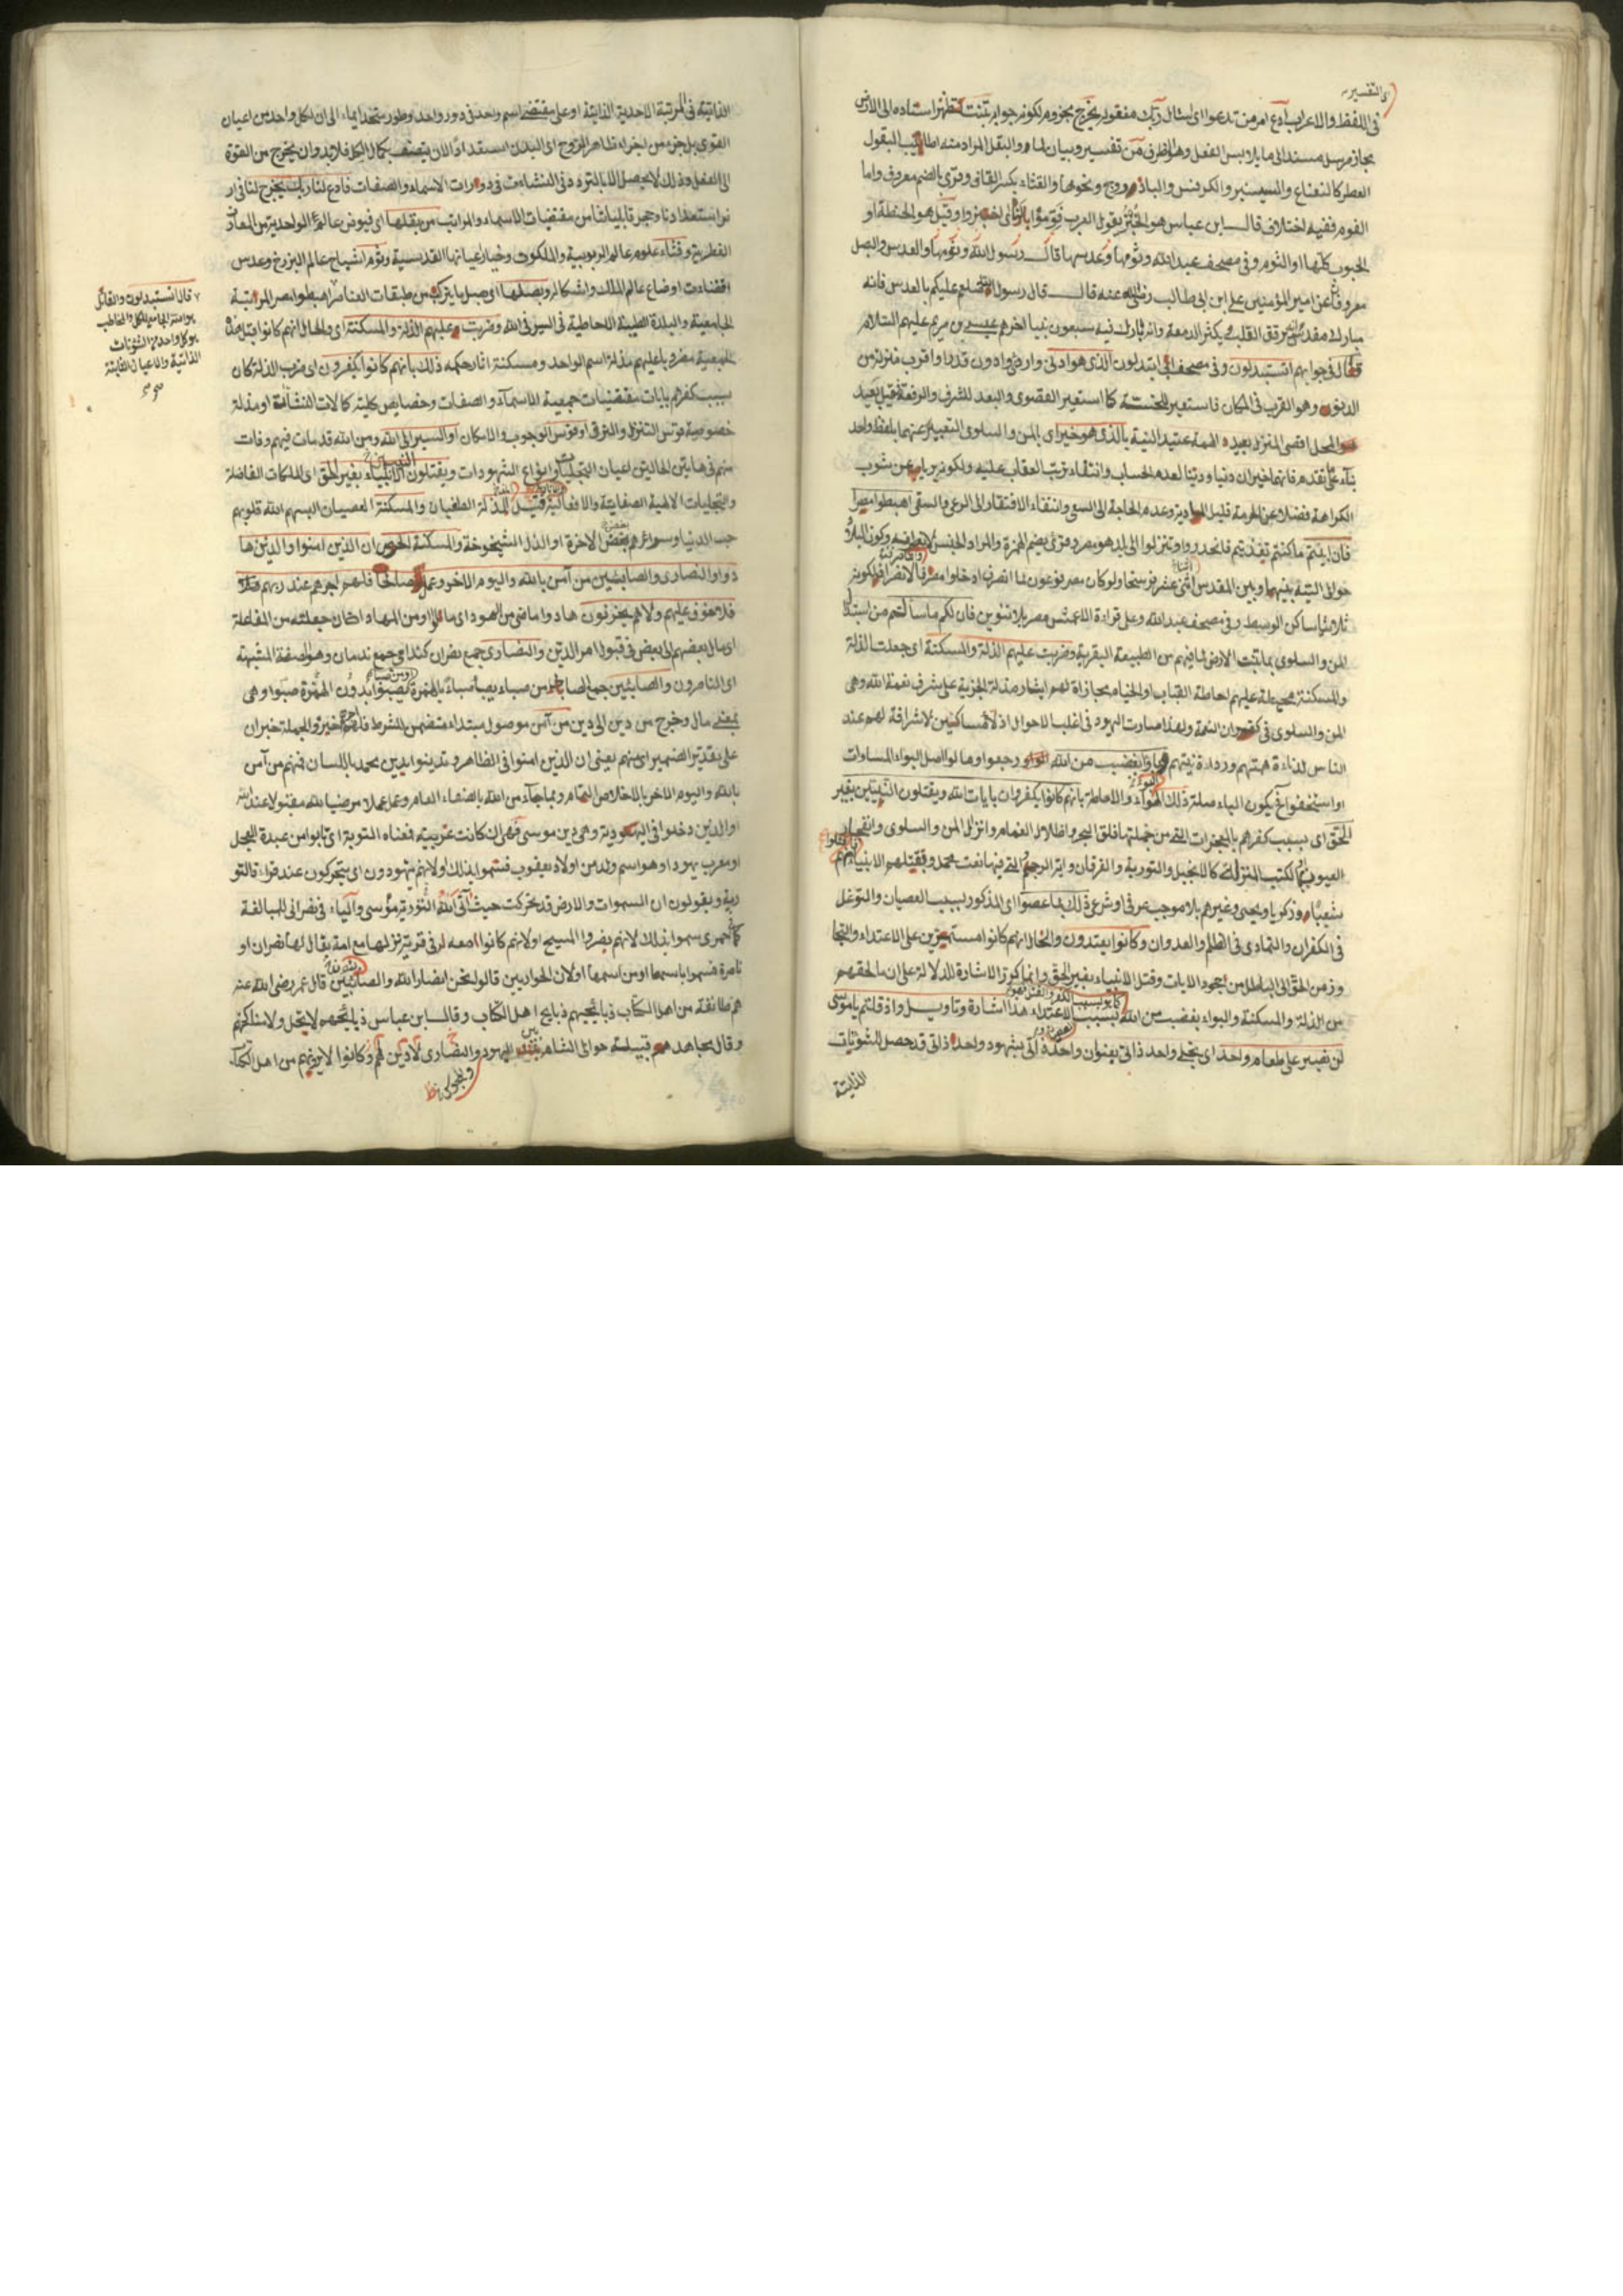 ى التفسير
فى اللفظ والاعراب ادع امر من تدعوا اى اسئال ربك مفعوله يخرج مجزوم لكونه جوابه تنبت تظهر اسناده الى الارض
مجاز مرسل مسند الى ما يلابس الفعل وهو الظرف من تفسير وبيان لما والبقل المراد منه اطايب البقول
العطر كالنعناع والسيسنبر والكرفس والباذروج ونحوها والقثاء بكسر القاف وقرئ بالضم معروف واما
الفوم ففيه اختلاف قال ابن عباس هو الخبز يقول العرب فوموا لنا اى اختبزوا وقيل هو الحنطة او
الحبوب كلها او الثوم وفى مصحف عبد الله وثومها وعدسها قال رسول الله وثومها والعدس والبصل
معروف عن امير المؤمنين على ابن ابى طالب رضى الله عنه قال قال رسول الله صلعم عليكم بالعدس فانه
مبارك مقدس يرقق القلب يكثر الدمعة وانه بارك فيه سبعون نبيا اخرهم عيسى بن مريم عليهم السلام
قال فى جوابهم اتستبدلون وفى مصحف ابى اتبدلون الذى هو ادنى وارضى وادون قدرا واقرب منزلة من
الدنو وهو القرب فى المكان فاستعير للخسة كما استعير القصوى والبعد للشرف والرفعة فقيل بعيد
المحل اقصى المنزلة بعيدة الهمة عتيد النية بالذى هو خير اى بالمن والسلوى التعبير عنهما بلفظ واحد
بناء على تقدم فانهما خيران دنيا ودينا لعدم الحساب وانتفاء ترتب العقاب عليه ولكونه برياء عن شوب
الكراهة فضلا عن الحرمة قليل المادية وعدم الحاجة الى السعى وانتفاء الافتقار الى الرعى والسقى اهبطوا مصرا
فان ابيتم ما كنتم تغذيتم فانحدروا وتنزلوا الى بلد هو مصر وقرئ بضم الهمزة والمراد الجنس وكون البلاد
حوالى التيه بينهما وبين المقدس اثنى عشر فرسخا ولو كان مصر فرعون لما انصرف ادخلوا مصر لكونه
ثلاثيا ساكن الوسط وفى مصحف عبد الله وعلى قراءة الاعمش مصر بلا تنوين فان لكم ما سألتم من استبدال
المن والسلوى بما تنبت الارض لما فيهم من الطبيعة البقرية وضربت عليهم الذلة والمسكنة اى جعلت الذلة
والمسكنة محيطة عليهم احاطة القباب او الخيام مجازاة لهم ايثار مذلة الجزية على شرف نعمة الله وهى
المن والسلوى فى كفران النعمة ولهذا صارت اليهود فى اغلب الاحوال اذلاء مساكنين لا شرافة لهم عند
الناس لدناءة همتهم ورداءة نيتهم وباؤا بغضب من الله ورجعوا ومالوا اصل البواء المساوات
او استخففوا فيكون الباء صلة ذلك البواء والاحاطة بانهم كانوا يكفرون بايات الله ويقتلون النبيين بغير
الحق اى بسبب كفرهم بالمعجزات التى من جملتها فلق البحر واظلال الغمام وانزال المن والسلوى وانفجار
العيون بالكتب المنزلة كالانجيل والتورية والفرقان واية الرجم التى فيها نعت محمد وقتلهم الانبياء
شعياء وزكريا ويحيى وغيرهم بلا موجب عرفى او شرعى ذلك بما عصوا اى المذكور بسبب العصيان والتوغل
فى الكفران والتمادى فى الظلم والعدوان وكانوا يعتدون والحال انهم كانوا مستمرين على الاعتداء والتجا
وز من الحق الى الباطل من جحود الايات وقتل الانبياء بغير الحق وانما كرر الاشارة للدلالة على ان ما لحقهم
من الذلة والمسكنة والبواء بغضب من الله كما هو بسبب الكفر والقتل فهو بسبب الاعتداء هذا اشارة وتاويل واذ قلتم يا موسى
لن نصبر على طعام واحد اى تجلى واحد ذاتى بعنوان واحدة اى بشهود واحد ذاتى قد حصل للشونات
الذاتية
الذاتية فى المرتبة الاحدية الذاتية او على مقتضى اسم واحد فى دور واحد وطور متحد ايماء الى ان لكل واحد من اعيان
القوى بل جزء من اجزاء ظاهر الروح اى البدن استعدادا لان يتصف بكمال الكل فلا بد وان يخرج من القوة
الى الفعل وذلك لا يحصل الا بالتردد فى النشاءت فى دورات الاسماء والصفات فادع لنا ربك يخرج لنا فى ار
ض استعدادنا وحجر قابلياتنا من مقتضيات الاسماء والمراتب من بقلها اى فيوض عالم الواحدية من المعارف
الفطرية وقثاء علوم عالم الربوبية والملكوت وخيار اعيانها القدسية وثوم اشباح عالم البرزخ وعدس
اقتضاءت اوضاع عالم الملك واشكاله وبصلها اى حصل ما يتركب من طبقات العناصر اهبطوا مصر المرتبة
الجامعية والبلدة الطيبة الاحاطية فى السير فى الله وضربت عليهم الذلة والمسكنة اى والحال انهم كانوا قبل هذه
الجمعية مضروبا عليهم مذلة اسم الواحد ومسكنة اثار حكمه ذلك بانهم كانوا يكفرون اى ضرب الذلة كان
بسبب كفرهم بايات مقتضيات جمعية الاسماء والصفات وخصايص كلية كمالات النشاءة او مذلة
خصوصية قوس التنزل والترقى او قوس الوجوب والامكان او السير الى الله ومن الله قد مات فيهم وفات
منهم فى هاتين الحالتين اعيان التجليات وانواع الشهودات ويقتلون النبيين الانبياء بغير الحق اى الملكات الفاضلة
والتجليات الالهية الصفاتية والافعالية قيل الذلة الطغيان والمسكنة العصيان البسهم الله قلوبهم
حب الدنيا وسواغرهم بغض الاخرة او الذل الشيخوخة والمسكنة الحرص ان الذين امنوا والذين ها
دوا والنصارى والصابئين من آمن بالله واليوم الاخر وعمل صالحا فلهم اجرهم عند ربهم
فلا خوف عليهم ولا هم يحزنون هادوا ماضى من الهود اى مالوا ومن المهاد اذا كان جعلته من المفاعلة
اى مال بعضهم الى بعض فى قبول امر الدين والنصارى جمع نصران كندامى جمع ندمان وهو الصفة المشبهة
اى الناصرون والصابئين جمع الصابئ من صباء يصبأ صباء بالهمزة ومن صبا يصبوا بدون الهمزة صبوا وهى
بمعنى مال وخرج من دين الى دين من آمن موصول مبتداء متضمن الشرط فلهم اجرهم خبره والجملة خبر ان
على تقدير الضمير اى منهم يعنى ان الذين امنوا فى الظاهر وتدينوا بدين محمد باللسان فمنهم من آمن
بالله واليوم الاخر بالاخلاص التمام وبما جآء من الله بالصفاء العام وعمل عملا مرضيا لله مقبولا عند الله
او الذين دخلوا فى اليهودية وهى دين موسى فهى ان كانت عربية فمعناه التوبة اى تابوا من عبدة العجل
او معرب يهودا وهو اسم ولد من اولاد يعقوب فسموا بذلك ولانهم يتهودون اى يتحركون عند قراءة التو
رية ويقولون ان السموات والارض قد تحركت حيث اتى الله التورية موسى والياء فى نصرانى للمبالغة
كاحمرى سموا بذلك لانهم نصروا المسيح او لانهم كانوا معه فى قرية نزلها مع امه يقال لها نصران او
ناصرة فسموا باسمها او من اسمها او لان الحواريين قالوا نحن انصار الله والصابئين قال عمر رضى الله عنه
هم طائفة من اهل الكتاب ذبائحهم ذبايح اهل الكتاب وقال ابن عباس ذبائحهم لا يحل ولا مناكحتهم
وقال مجاهد هم قبيلة حوالى الشام بين اليهود والنصارى لا دين لهم وكانوا لا يرونهم من اهل الكتاب
قال اتستبدلون والقائل
هو امتزاج الجامع للكل والمخاطب
هو كل واحد من الشونات
الذاتية والاعيان الثابتة
صح